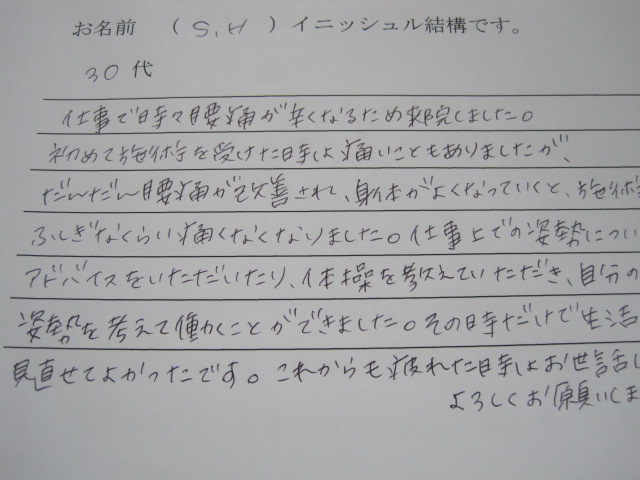 お名前 （ S,H ）イニッシュル結構です。
30代
仕事で時々腰痛が辛くなるため来院しました。
初めて施術を受けた時は痛いこともありましたが、
だんだん腰痛が改善され、身体がよくなっていくと、施術
ふしぎなくらい痛くなくなりました。仕事上での姿勢につい
アドバイスをいただいたり、体操を教えていただき、自分の
姿勢を考えて働くことができました。その時だけで生活
見直せてよかったです。これからも疲れた時はお世話
よろしくお願いしま